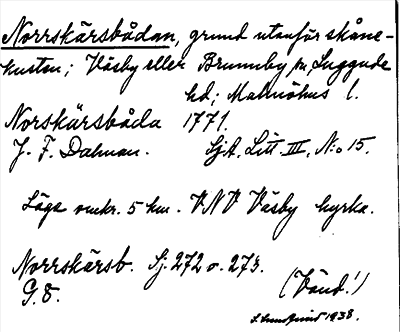 Norrskärsbådan, grund utanför skåne-
kusten; Väsby eller Brunnby sn, Luggude
hd; Malmöhus l.
Norskärsbåda 1771.
J. F. Dalman. Sj.A. Litt. III, N:o 15.
Läge omkr. 5 km. VNV Väsby kyrka.
Norrskärsb. Sj. 272 o. 273.
G. 8.
(Vänd!)
1938.